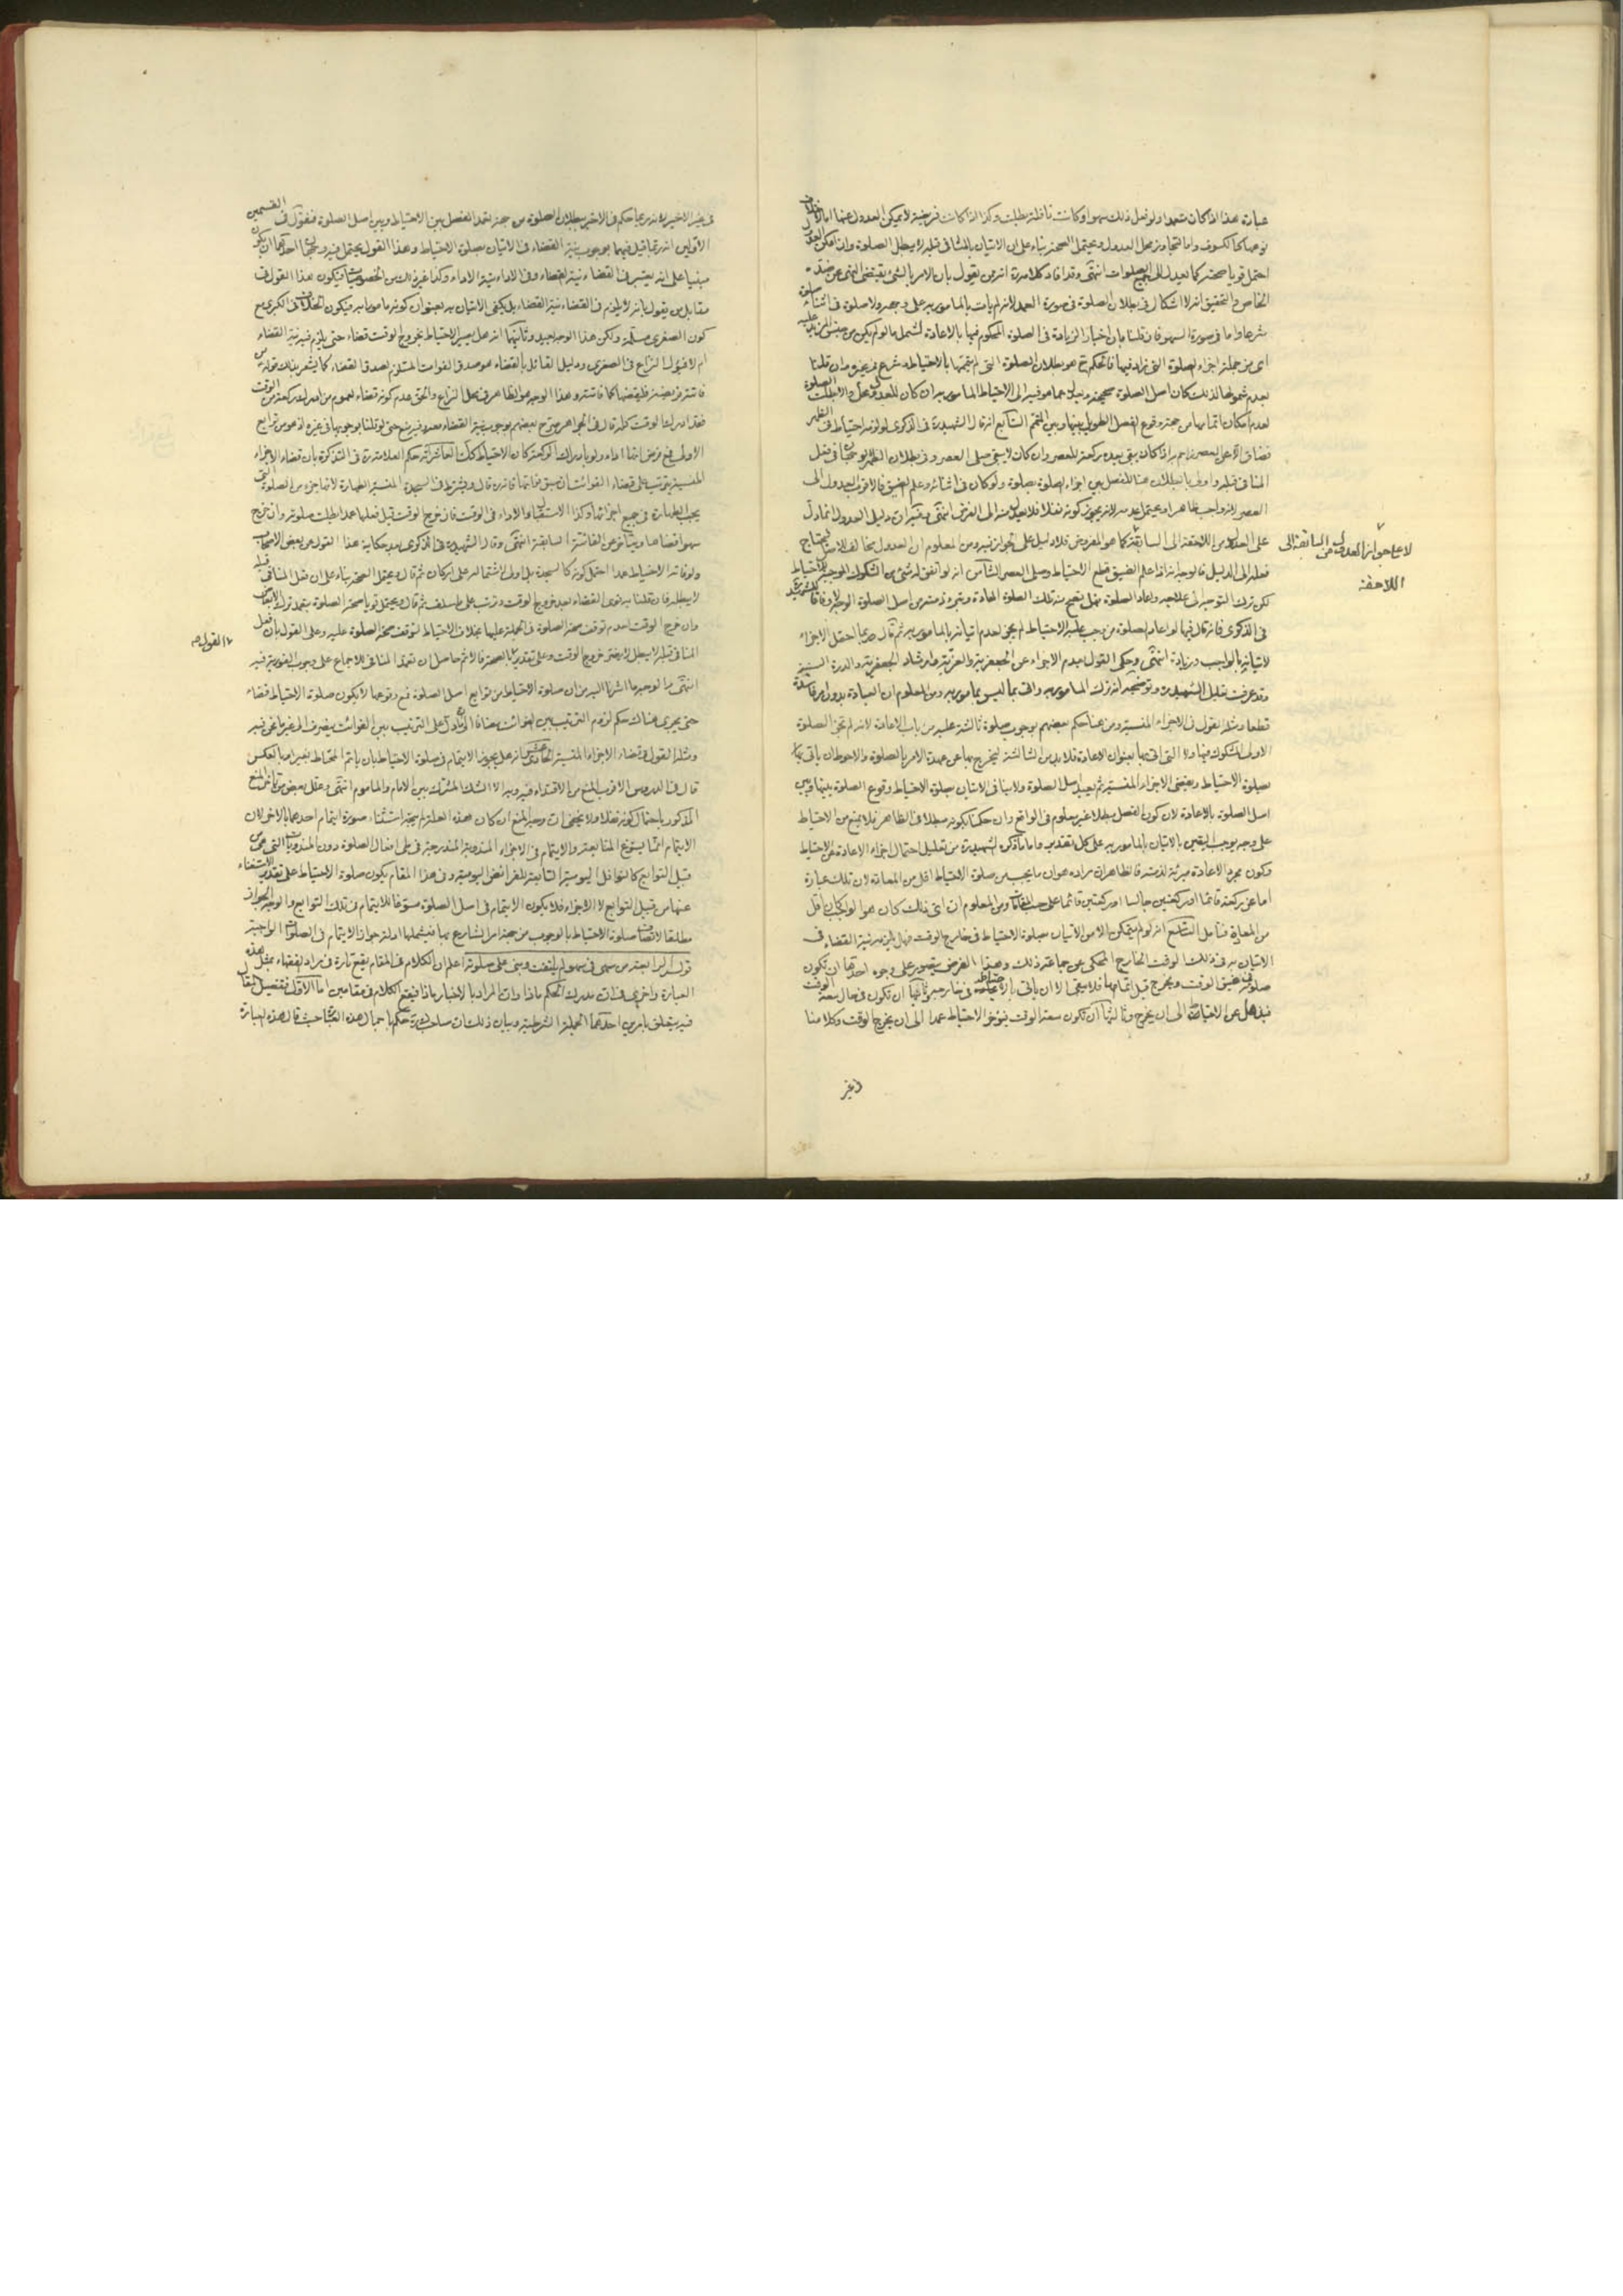 عبارة هذا اذا كان متعمدا ولو فعل ذلك سهوا وكانت نافلة بطلت وكذا اذا كانت فريضة لا يمكن العدول عنها اما لاختلاف
نوعهما كالكسوف واما لتجاوز محل العدول ويحتمل الصحة بناء على ان الاتيان بالمنافى قبله لا يبطل الصلوة وان امكن العدول
احتمل قويا صحته كما يعدل الى جميع الصلوات انتهى وقد افاد كلامه انه من يقول بان الامر بالشئ يقتضى النهى عن ضده
الخاص والتحقيق انه لا اشكال فى بطلان الصلوة فى صورة العمد لانه لم يات بالمامور به على وجهه ولا صلوة فى اثناء صلوة
شرعا واما فى صورة السهو فان قلنا بان اخبار الزيادة فى الصلوة المحكوم فيها بالاعادة تشمل ما لو لم يكن من جنس المزيد عليه
اى من جملة اجزاء الصلوة التى زاد فيها فالحكم ح هو بطلان الصلوة التى لم يتمها بالاحتياط وشرع فى غيره وان قلنا
بعدم شمولها لذلك كان اصل الصلوة صحيحة ويعدل عما هو فيه الى الاحتياط المامور به ان كان للعدول محل والا بطلت الصلوة
لعدم امكان اتمامها من جهة وقوع الفصل الطويل بينها وبين المتمم السابع انه قال الشهيد ره فى الذكرى لو لزمه احتياط فى الظهر
فضاق الا عن العصر زاحم به اذا كان يبقى بعده ركعة للعصر وان كان لا يبقى صلى العصر وفى بطلان الظهر الوجهان فى فعل
المنافى قبله واولى بالبطلان هنا للفصل بين اجزاء الصلوة بصلوة ولو كان فى اثنائه وعلم الضيق فالاقرب العدول الى
العصر لانه واجب ظاهرا ويحتمل عدمه لانه يجوز كونه نفلا فلا يعدل منه الى الفرض انتهى وفيه ان دليل العدول انما دل
على العدول من اللاحقة الى السابقة كما هو المفروض فلا دليل على جوازه فيه ومن المعلوم ان العدول مخالف للاصل يحتاج
لا على جواز العدول من السابقة الى
اللاحقة
فعله الى الدليل فالوجه انه اذا علم الضيق قطع الاحتياط وصلى العصر الثامن انه لو اتفق له شئ من الشكوك الموجبة للاحتياط
لكن ترك التوجه الى علاجه واعاد الصلوة فهل يصح منه تلك الصلوة المعادة وتبرء ذمته من اصل الصلوة الوجه لا وفاقا للشهيد ره
فى الذكرى فانه قال فيها لو اعاد الصلوة من وجب عليه الاحتياط لم يجز لعدم اتيانه بالمامور به ثم قال وربما احتمل الاجزاء
لاتيانه بالواجب وزيادة انتهى وحكى القول بعدم الاجزاء عن الجعفرية والعزية وارشاد الجعفرية والدرة السنية
وقد عرفت تعليل الشهيد ره وتوضيحه انه ترك المامور به واتى بما ليس بمامور به ومن المعلوم ان العبادة بدون امر فاسدة
قطعا ومثله القول فى الاجزاء المنسية ومن هنا حكم بعضهم بوجوب صلوة ثالثة عليه من باب الاعادة لانه لم تجز الصلوة
الاولى المشكوك فيها ولا التى اتى بها بعنوان الاعادة فلا بد من الثالثة ليخرج بها عن عهدة الامر بالصلوة والاحوط ان ياتى بها
بصلوة الاحتياط ويقضى الاجزاء المنسية ثم يعيد اصل الصلوة ولا ينافى الاتيان بصلوة الاحتياط وقوع الصلوة بينها وبين
اصل الصلوة بالاعادة لان كون الفصل مبطلا غير معلوم فى الواقع وان حكمنا بكونه مبطلا فى الظاهر فلا يمنع من الاحتياط
على وجه يوجب اليقين بالاتيان بالمامور به على كل تقدير واما ما ذكره الشهيد ره من تعليل احتمال اجزاء الاعادة عن الاحتياط
وكون مجرد الاعادة مبرئة لذمته فالظاهر ان مراده هو ان ما يجب من صلوة الاحتياط اقل من المعادة لان تلك عبارة
اما عن ركعة قائما او ركعتين جالسا او ركعتين قائما على حسب المقامات ومن المعلوم ان اتى ذلك كان هو الواجب كان اقل
من المعادة فتامل التاسع انه لو لم يتمكن الا من الاتيان بصلوة الاحتياط فى خارج الوقت فهل يلزمه نية القضاء فى
الاتيان به فى ذلك الوقت الخارج المحكى عن جماعة ذلك وهذا الفرض يتصور على وجوه احدها ان تكون
صلوته فى ضيق الوقت ويخرج قبل اتمامها فلا يبقى الا ان ياتى بالاحتياط فى خارجه وثانيها ان تكون فى حال سعة الوقت
فيذهل عن الاحتياط الى ان يخرج وثالثها ان تكون سعة الوقت فيؤخر الاحتياط عمدا الى ان يخرج الوقت وكلامنا
فى غير
فى غير الاخير لانه ربما حكم فى الاخير ببطلان الصلوة من جهة تعمد الفصل بين الاحتياط وبين اصل الصلوة فنقول فى القسمين
الاولين انه ربما قيل فيهما بوجوب نية القضاء فى الاتيان بصلوة الاحتياط وهذا القول يحتمل فيه وجهان احدهما ان يكون
مبنيا على انه يعتبر فى القضاء نية القضاء وفى الاداء نية الاداء وكذا غير ذلك من الخصوصيات فيكون هذا القول فى
مقابل من يقول بانه لا يلزم فى القضاء نية القضاء بل يكفى الاتيان به بعنوان كونه مامورا به ويكون الخلاف فى الكبرى مع
كون الصغرى مسلمة ولكن هذا الوجه بعيد وثانيهما انه هل يصير الاحتياط بخروج الوقت قضاء حتى يلزم فيه نية القضاء
ام لا فيؤل النزاع فى الصغرى ودليل القائل بالقضاء هو صدق الفوات المستلزم لصدق القضاء كما يشعر بذلك قوله من
فاتته فريضة فليقضها كما فاتته وهذا الوجه هو الظاهر فى محل النزاع والحق عدم كونه قضاء لعموم من ادرك ركعة من الوقت
فقد ادرك الوقت كله قال فى الجواهر صرح بعضهم بوجوب نية القضاء بعده فيه ح حتى لو قلنا بوجوبها فى غيره اذ هو من توابع
الاولى فمع فرض انها اداء ولو بادراك الركعة كان الاحتياط كك العاشر انه حكم العلامة ره فى التذكرة بان قضاء الاجزاء
المنسية يترتب على قضاء الفوائت ان سبق فاتها فانه ره قال ويشترط فى السجدة المنسية الطهارة لانها جزء من الصلوة التى
يجب الطهارة فى جميع اجزائها وكذا الاستقبال والاداء فى الوقت فان خرج الوقت قبل فعلها عمدا بطلت صلوته وان خرج
سهوا قضاها ويتاخر عن الفائتة السابقة انتهى وقال الشهيد ره فى الذكرى بعد حكاية هذا القول عن بعض الاصحاب
ولو فاته الاحتياط عمدا احتمل كونه كالسجدة بل اولى لاشتماله على اركان ثم قال ويحتمل الصحة بناء على ان فعل المنافى قبله
لا يبطله فان قلنا به نوى القضاء بعد خروج الوقت وترتب على ما سلف ثم قال ويحتمل قويا صحة الصلوة بتعمد ترك الابعاض
وان خرج الوقت لعدم توقف صحة الصلوة فى الجملة عليها بخلاف الاحتياط لتوقف صحة الصلوة عليه وعلى القول بان فعل
القول ص
المنافى قبله لا يبطل لا يضر خروج الوقت وعلى تقدير الصحة فالاثم حاصل ان تعمد المنافى للاجماع على وجوب الفورية فيه
انتهى والوجه ما اشرنا اليه من ان صلوة الاحتياط من توابع اصل الصلوة فمع وقوعها لا يكون صلوة الاحتياط قضاء
حتى يجرى هناك حكم لزوم الترتيب بين الفوائت مضافا الى ان ما دل على الترتيب بين الفوائت ينصرف الى غير ما نحن فيه
ومثله القول فى قضاء الاجزاء المنسية الحادى عشر انه هل يجوز الايتمام فى صلوة الاحتياط بان ياتم المحتاط بغيره او بالعكس
قال فى الدروس الاقرب المنع من الاقتداء فيه وبه الا الشك المشترك بين الامام والماموم انتهى وعلل بعض من تاخر المنع
المذكور باحتمال كونه نفلا ولا يخفى ان وجه المنع ان كان هذه العلة لم يتجه استثناء صورة ايتمام احدهما بالاخر لان
الايتمام انما يسوغ المتابعة والايتمام فى الاجزاء المندوبة المندرجة فى طى افعال الصلوة دون المندوبات التى هى من
قبيل التوابع كالنوافل اليومية التابعة للفرائض اليومية وفى هذا المقام يكون صلوة الاحتياط على تقدير الاستغناء
عنها من قبيل التوابع لا الاجزاء فلا يكون الايتمام فى اصل الصلوة مسوغا للايتمام فى تلك التوابع والوجه الجواز
مطلقا لاتصاف صلوة الاحتياط بالوجوب من جهة امر الشارع بها فيشملها ادلة جواز الايتمام فى الصلوات الواجبة
قوله الرابعة من سهى فى سهو لم يلتفت وبنى على صلوته اعلم ان الكلام فى المقام يقع تارة فى مراد الفقهاء بمثل هذه
العبارة واخرى فى ان مدرك الحكم ماذا وان المراد بالاخبار ماذا فيقع الكلام فى مقامين اما الاول فتفصيل المقال
فيه يتعلق بامرين احدهما الجملة الشرطية وبيان ذلك ان صاحب ك ره حكم باجمال هذه العبارة حيث قال هذه العبارة